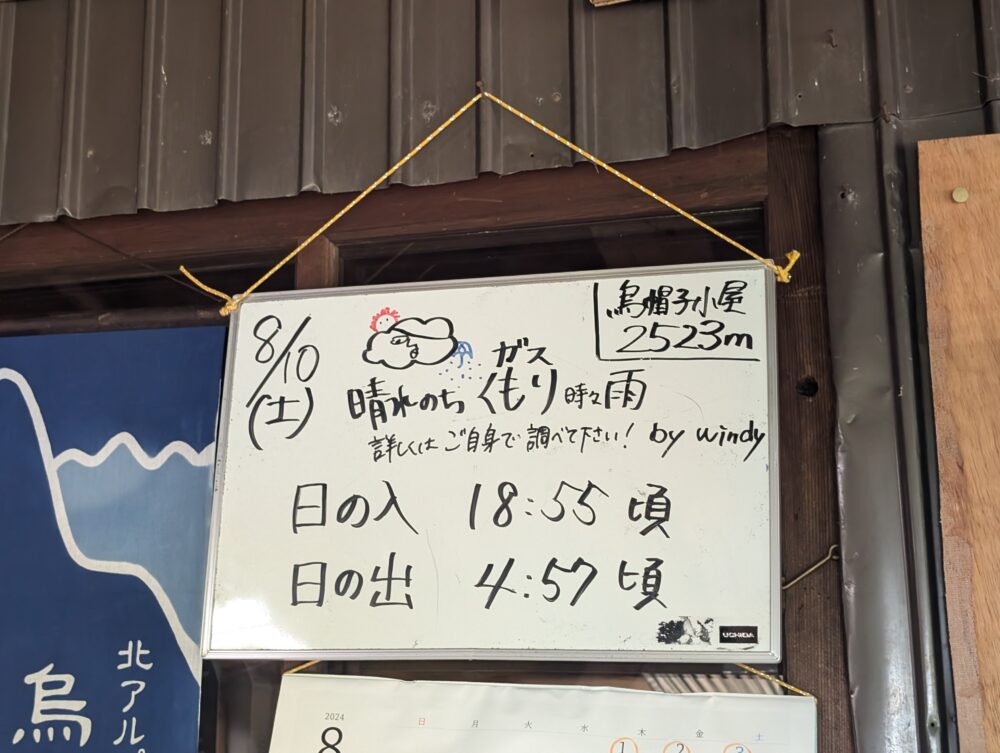 8/10
(土)
烏帽子小屋
2523m
ガス
晴れのち くもり 時々 雨
詳しくは ご自身で 調べて下さい! by windy
日の入 18:55 頃
日の出 4:57 頃
UCHIDA
北アルプ
烏
2024
8
日 月 火 水 木 金 土
1 2 3